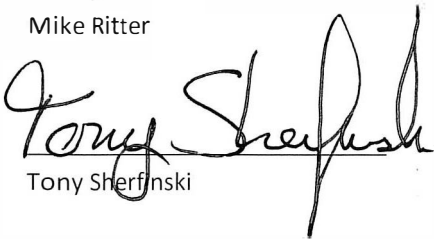 Mike Ritter
Tony Sherfinski
Tony Sherfinski